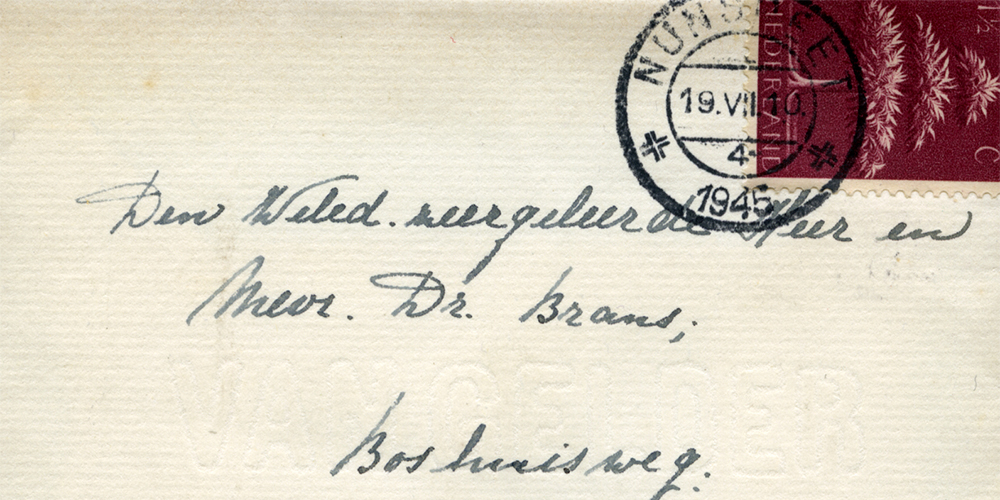 NUNSPEET
19.VII.10.
4-
1945
NEDERLAND
1½
C
Den Weled. zeergeleerde Heer en
Mevr. Dr. Brans,
VAN GELDER
Boshuisweg.